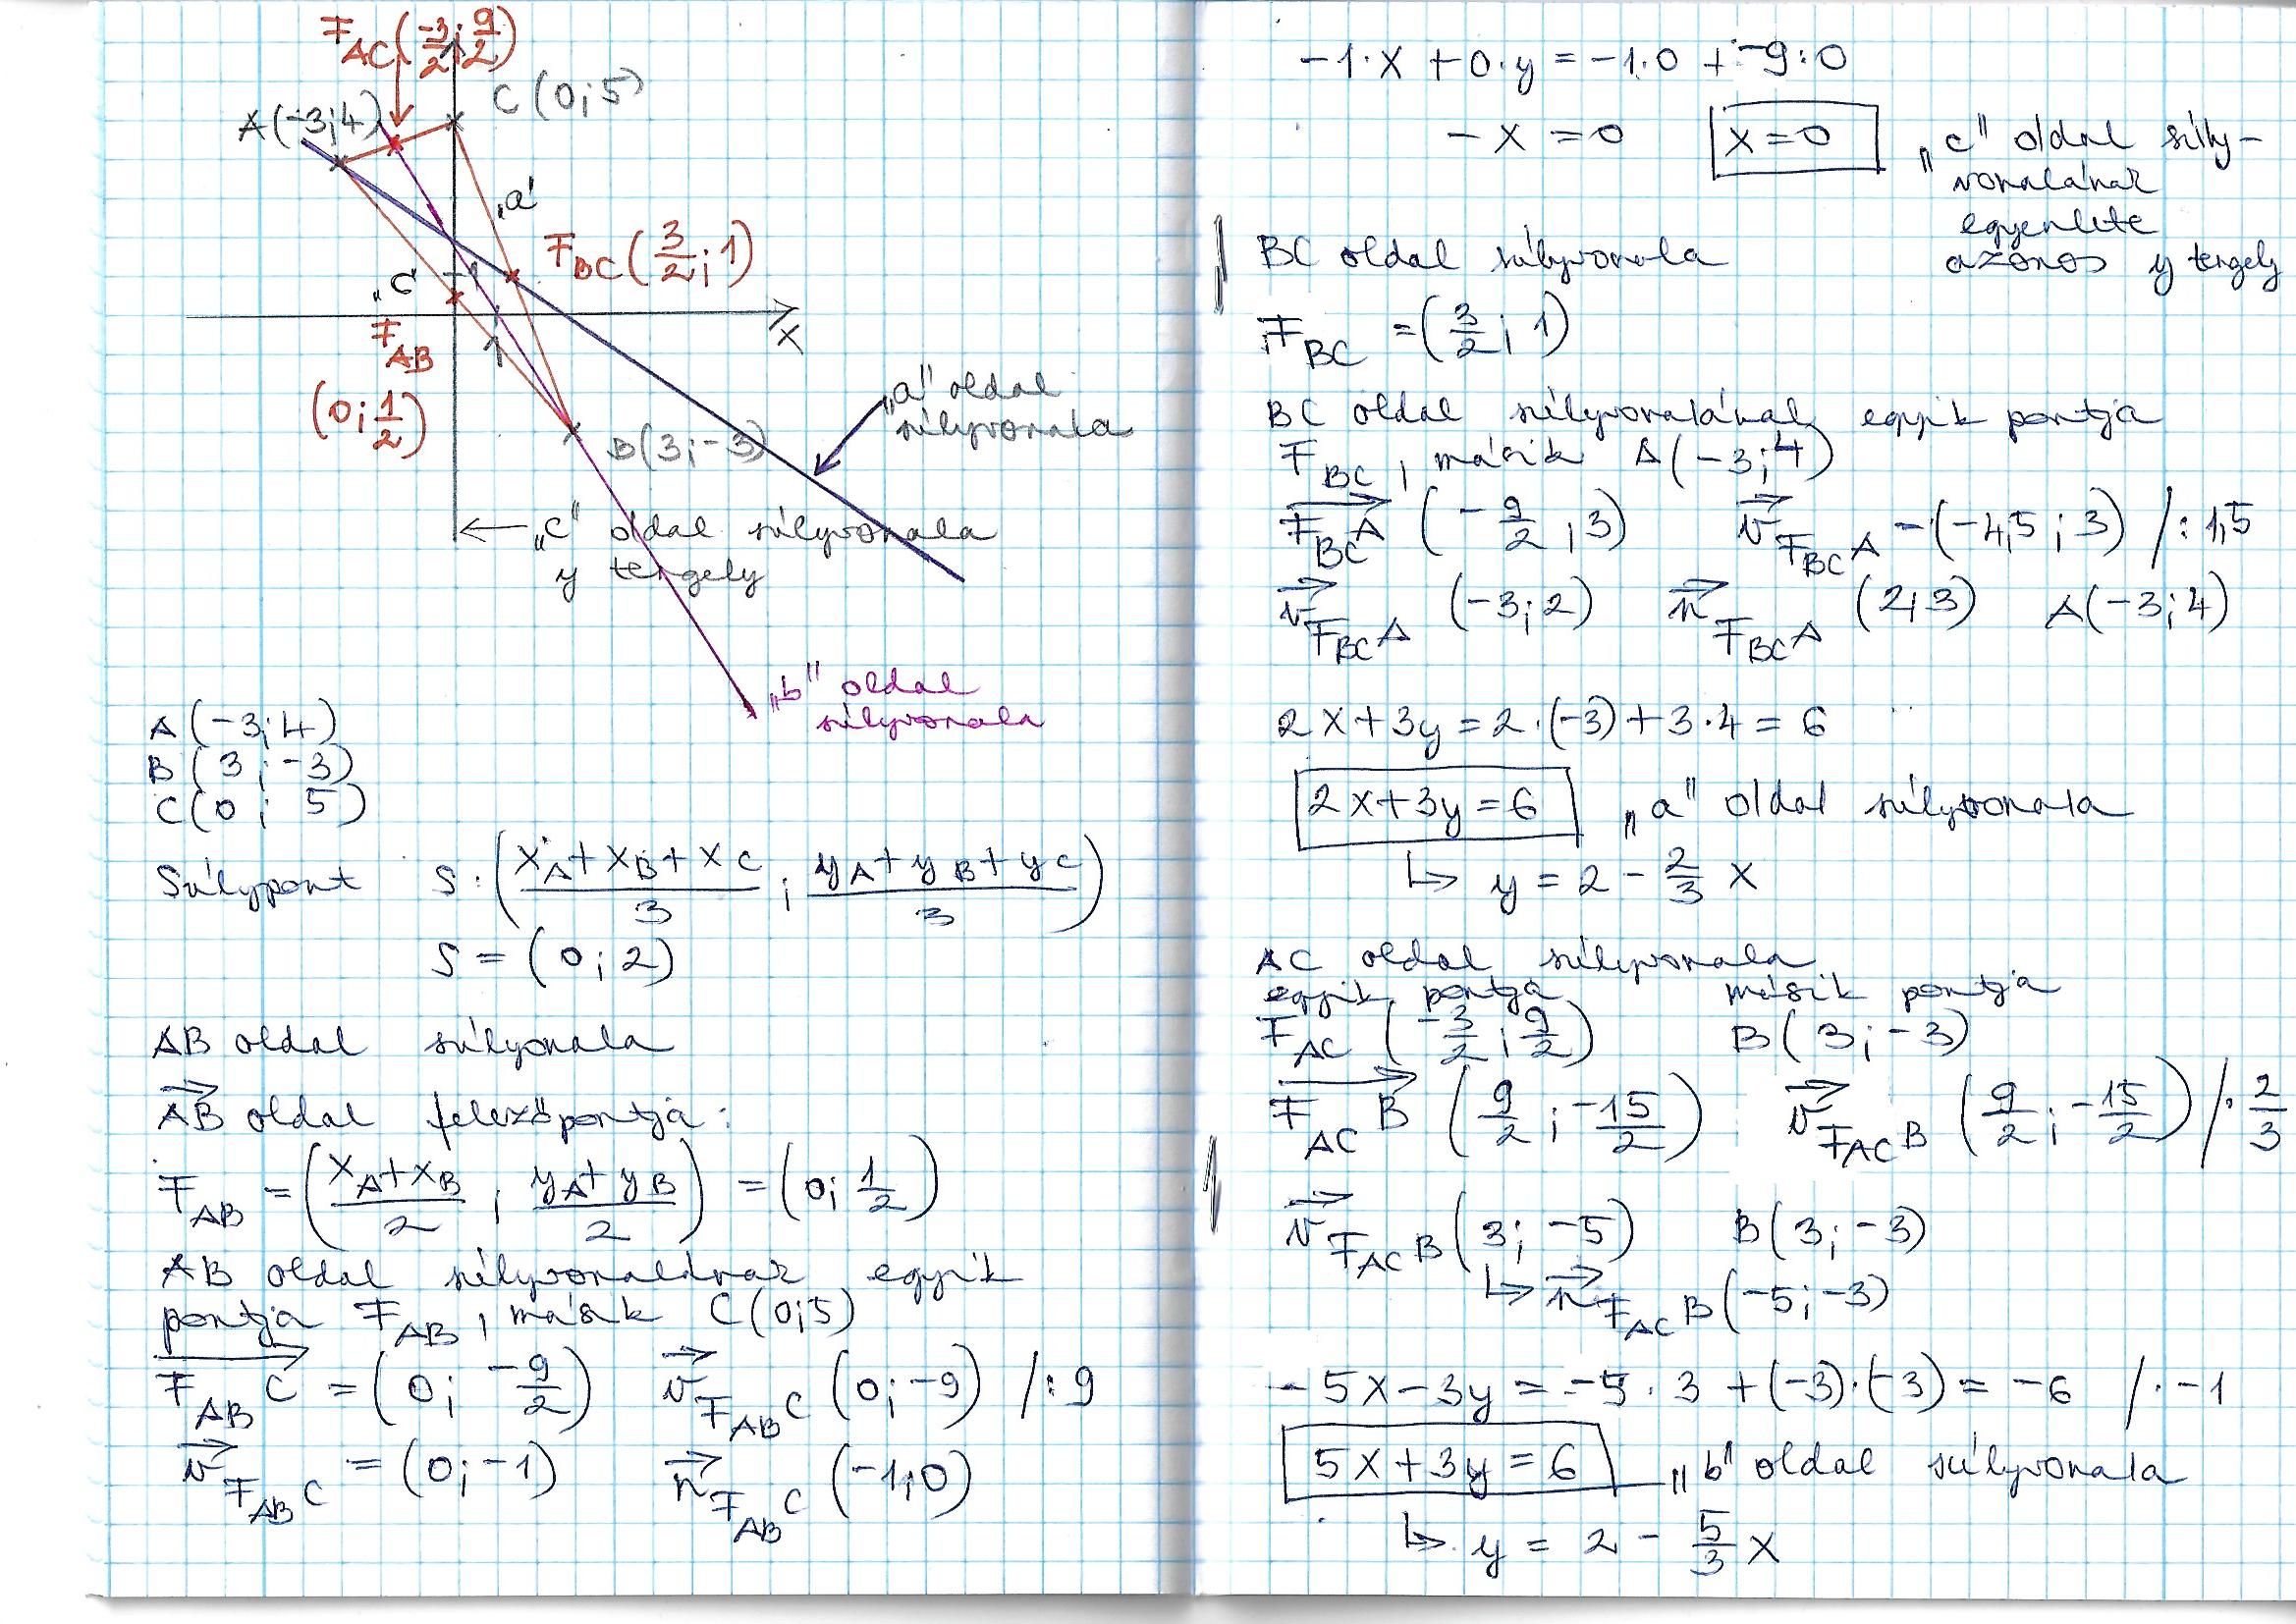 F_AC (-3/2; 9/2)
C (0; 5)
A(-3; 4)
„a"
F_BC (3/2; 1)
„c"
1
F_AB
(0; 1/2)
1
x
„a" oldal
súlyvonala
B(3; -3)
„c" oldal súlyvonala
y tengely
„b" oldal
súlyvonala
A (-3; 4)
B ( 3; -3)
C (0; 5)
Súlypont S: ((x_A + x_B + x_C)/3 ; (y_A + y_B + y_C)/3)
S = (0; 2)
AB oldal súlyonala
→AB oldal felezőpontja:
F_AB = ((x_A + x_B)/2 ; (y_A + y_B)/2) = (0; 1/2)
AB oldal súlyvonalának egyik
pontja F_AB, másik C (0;5)
→F_AB C = (0; -9/2) →v_F_AB C (0; -9) /:9
→v_F_AB C = (0; -1) →n_F_AB C (-1; 0)
-1·x + 0·y = -1·0 + -9·0
-x = 0 x = 0 „c" oldal súly-
vonalának
egyenlete
azonos y tengely
BC oldal súlyvonala
F_BC = (3/2; 1)
BC oldal súlyvonalának egyik pontja
F_BC, másik A(-3; 4)
→F_BC A (-9/2; 3) →v_F_BC A = (-4,5; 3) /:1,5
→v_F_BC A (-3; 2) →n_F_BC A (2; 3) A(-3; 4)
2x + 3y = 2·(-3) + 3·4 = 6
2x + 3y = 6 „a" oldal súlyvonala
↳ y = 2 - 2/3 x
AC oldal súlyvonala
egyik pontja másik pontja
F_AC (-3/2; 9/2) B(3; -3)
→F_AC B (9/2; -15/2) →v_F_AC B (9/2; -15/2) /· 2/3
→v_F_AC B (3; -5) B(3; -3)
↳ →n_F_AC B (-5; -3)
-5x - 3y = -5·3 + (-3)·(-3) = -6 /·-1
5x + 3y = 6 „b" oldal súlyvonala
↳ y = 2 - 5/3 x